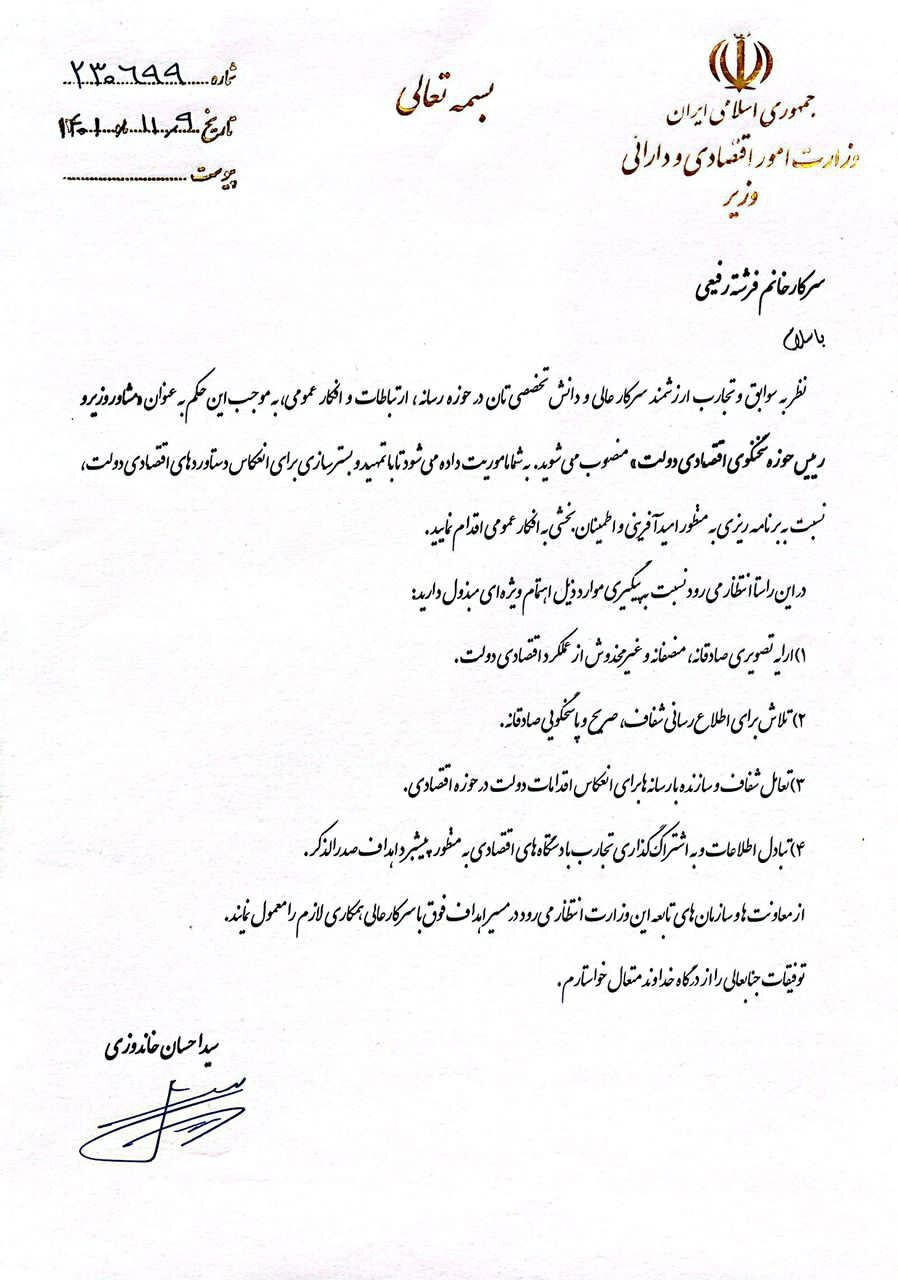 بسمه تعالی
جمهوری اسلامی ایران
وزارت امور اقتصادی و دارائی
وزیر
شماره ۲۳۰۶۹۹
تاریخ ۱۴۰۱/۱۱/۰۹
پیوست
سرکار خانم فرشته رفیعی
با سلام
نظر به سوابق و تجارب ارزشمند سرکار عالی و دانش تخصصی تان در حوزه رسانه، ارتباطات و افکار عمومی، به موجب این حکم به عنوان «مشاور وزیر و
رییس حوزه سخنگوی اقتصادی دولت» منصوب می شوید. به شما ماموریت داده می شود تا با تمهید و بسترسازی برای انعکاس دستاوردهای اقتصادی دولت،
نسبت به برنامه ریزی به منظور امیدآفرینی و اطمینان بخشی به افکار عمومی اقدام نمایید.
در این راستا انتظار می رود نسبت به پیگیری موارد ذیل اهتمام ویژه ای مبذول دارید:
۱) ارایه تصویری صادقانه، منصفانه و غیرمخدوش از عملکرد اقتصادی دولت.
۲) تلاش برای اطلاع رسانی شفاف، صریح و پاسخگویی صادقانه.
۳) تعامل شفاف و سازنده با رسانه ها برای انعکاس اقدامات دولت در حوزه اقتصادی.
۴) تبادل اطلاعات و به اشتراک گذاری تجارب با دستگاه های اقتصادی به منظور پیشبرد اهداف صدرالذکر.
از معاونت ها و سازمان های تابعه این وزارت انتظار می رود در مسیر اهداف فوق با سرکار عالی همکاری لازم را معمول نمایند.
توفیقات جنابعالی را از درگاه خداوند متعال خواستارم.
سید احسان خاندوزی